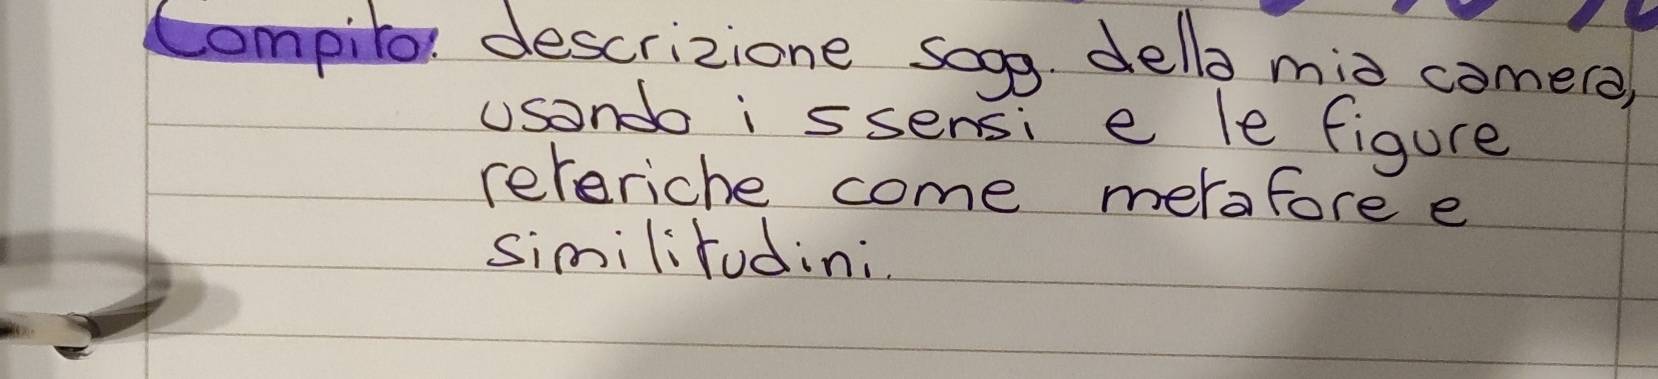 Compito: descrizione sogg. della mia camera,
usando i 5 sensi e le figure
retoriche come metafore e
similitudini.